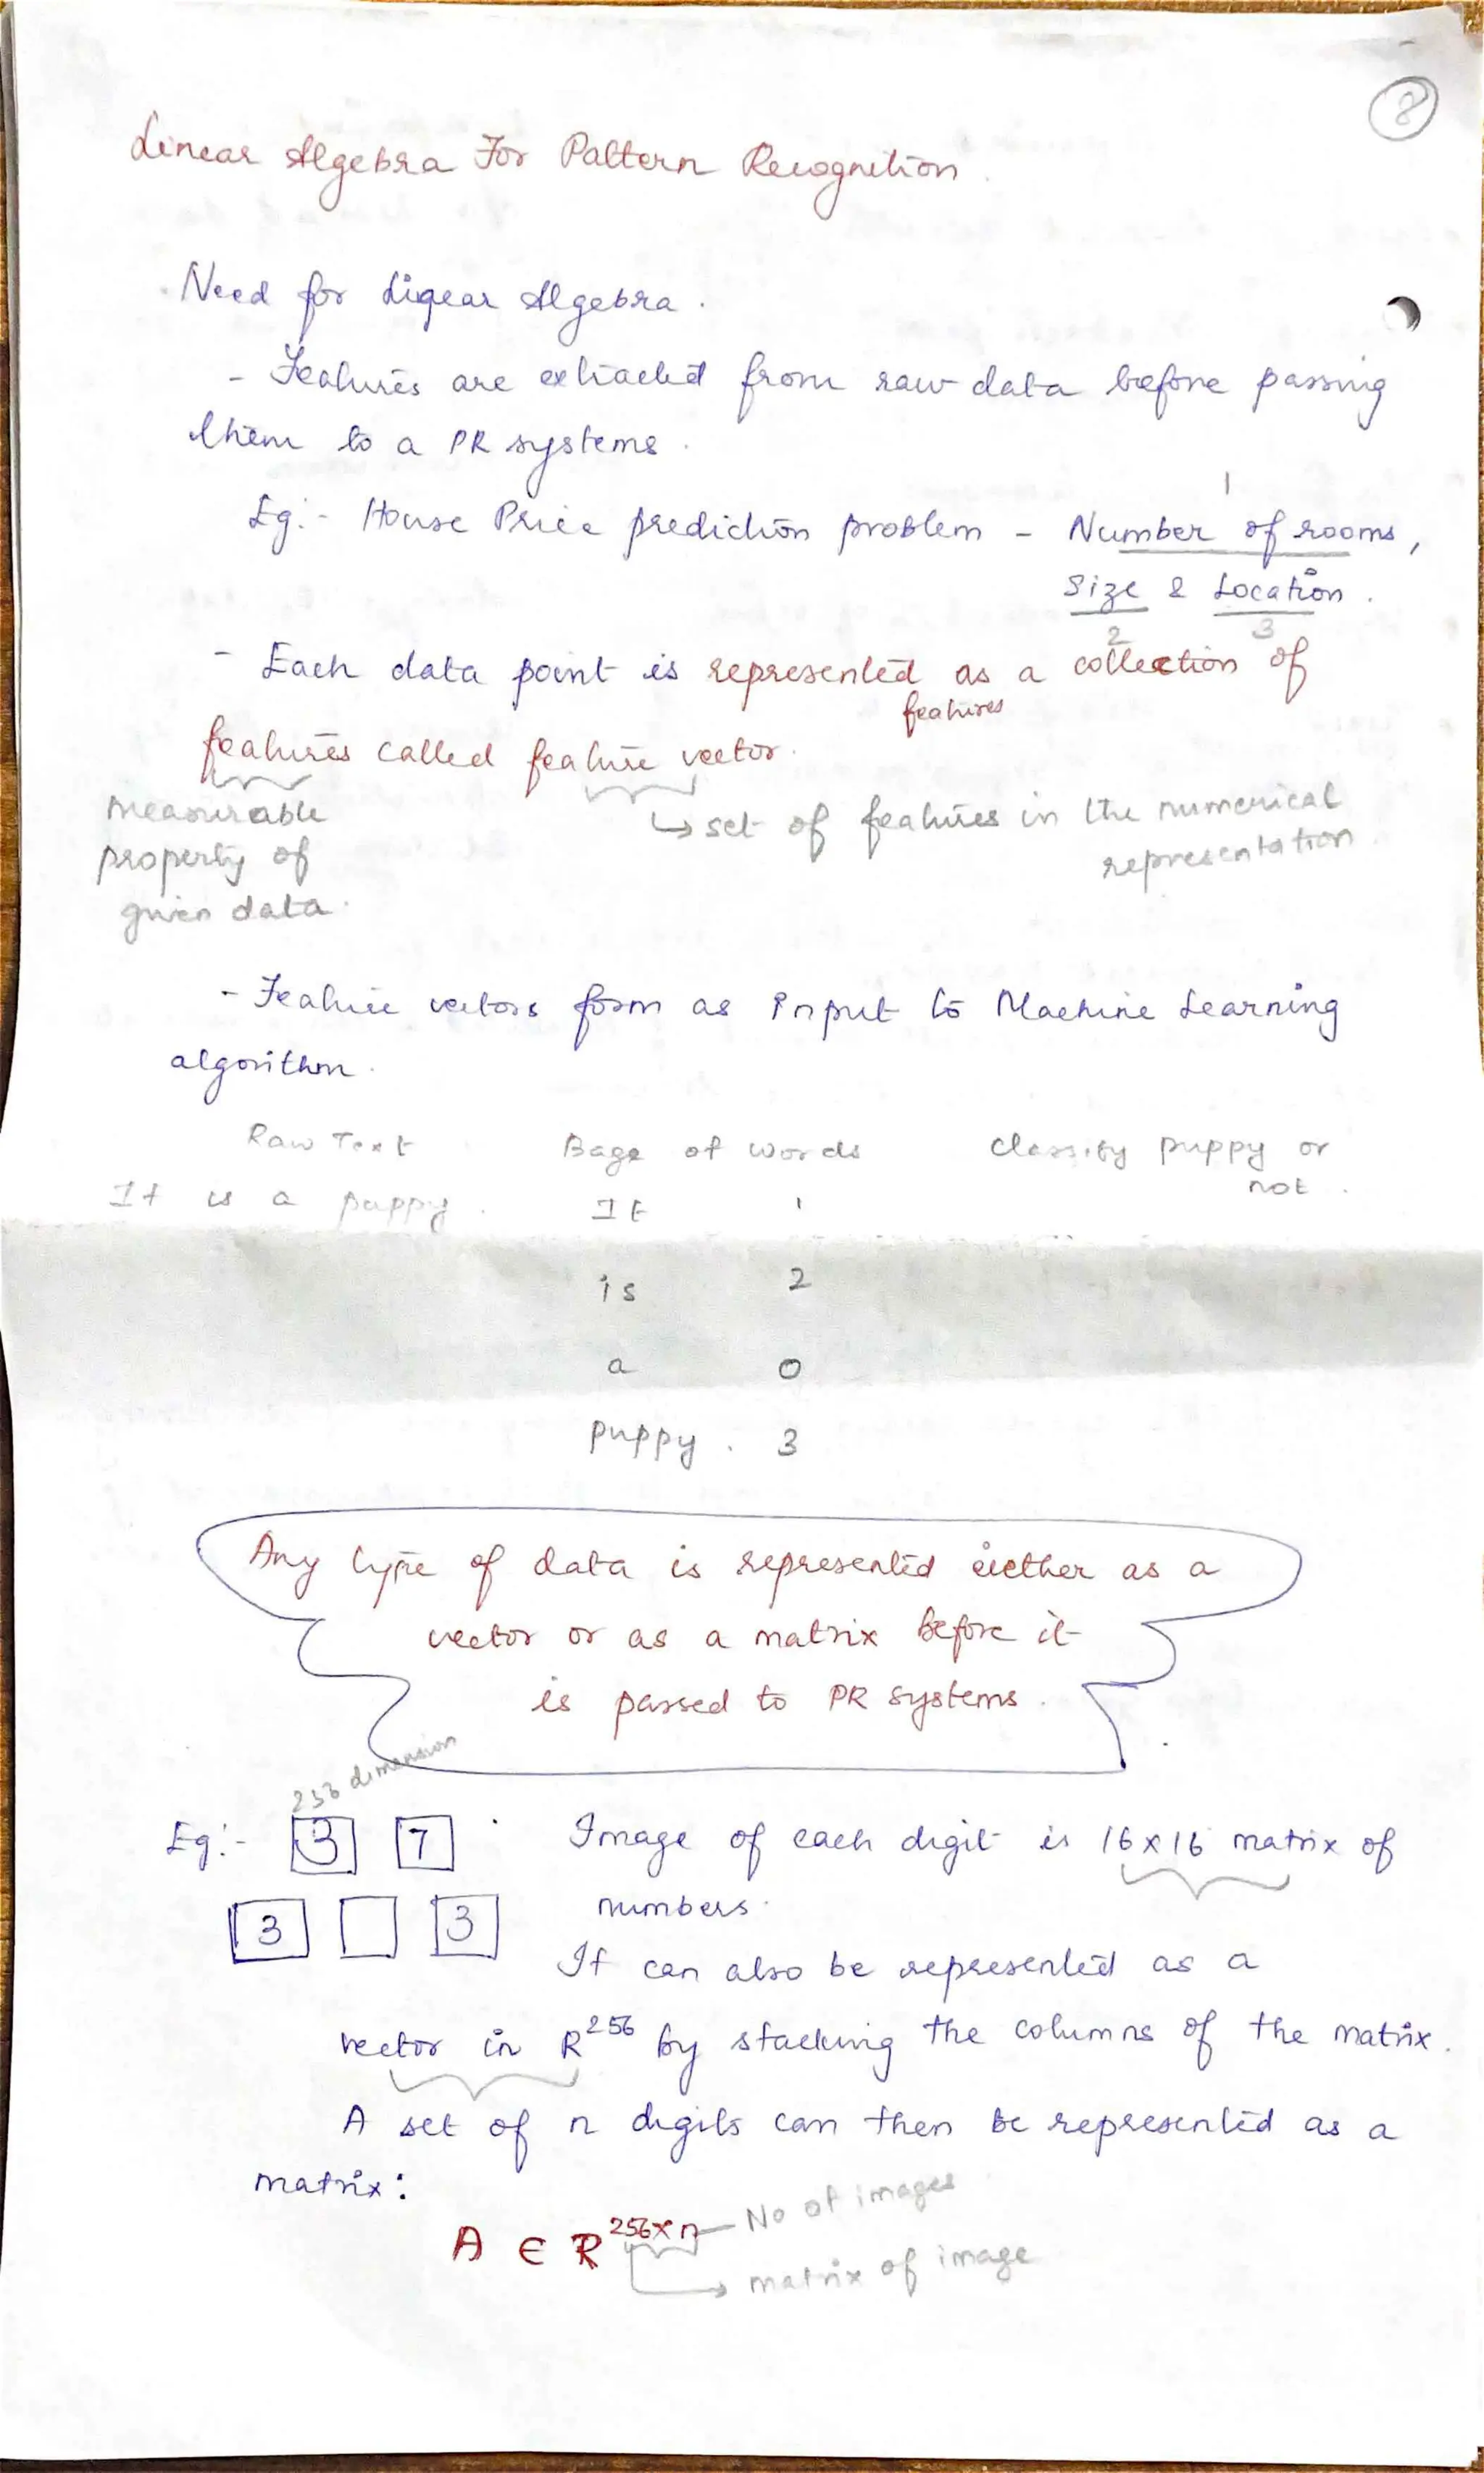 8
Linear Algebra For Pattern Recognition
. Need for Linear Algebra .
- Features are extracted from raw data before passing
them to a PR systems .
1
Eg:- House Price prediction problem - Number of rooms,
Size & Location .
2 3
- Each data point is represented as a collection of
features
features called feature vector.
measurable
property of
given data.
↳ set of features in the numerical
representation
- Feature vectors form as input to Machine Learning
algorithm.
Raw Text Bage of words classify puppy or
not .
It is a puppy. It 1
is 2
a 0
puppy . 3
Any type of data is represented eiether as a
vector or as a matrix before it
is passed to PR systems .
256 dimension
Eg:- 3 7 Image of each digit is 16 x 16 matrix of
numbers.
3 3
It can also be represented as a
vector in R^256 by stacking the columns of the matrix .
A set of n digits can then be represented as a
matrix:
A ∈ R^256×n - No of images
→ matrix of image